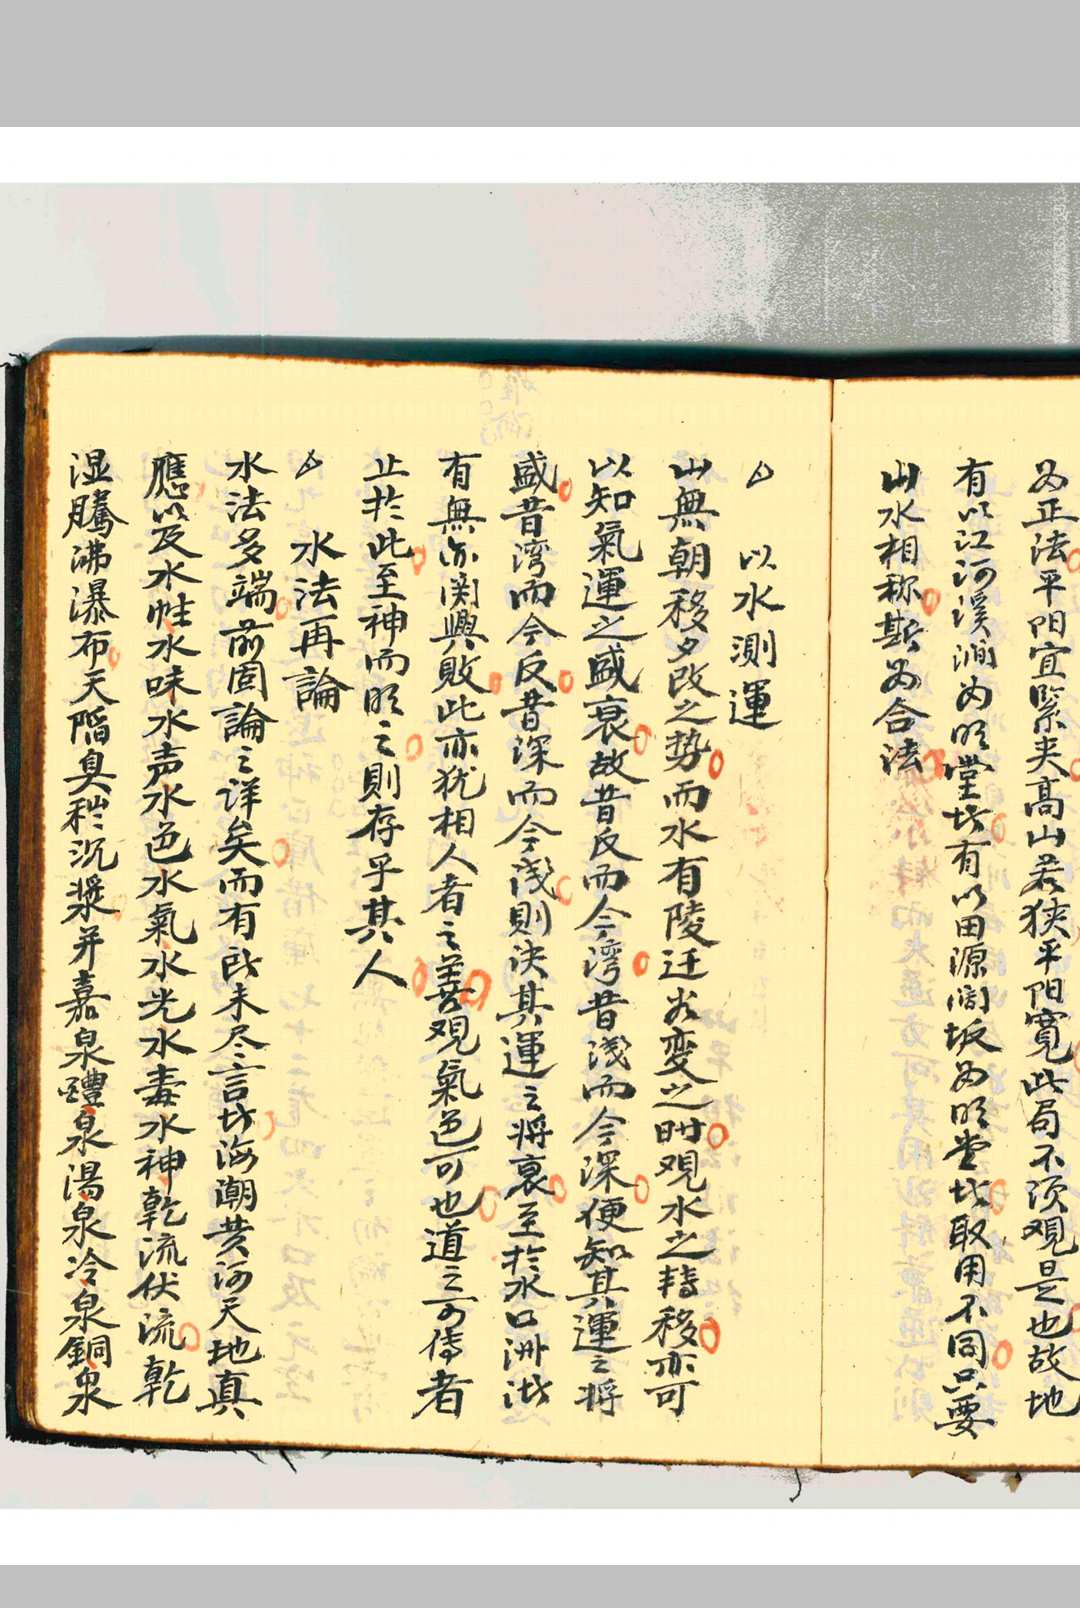 为正法平阳宜緊夹高山若狭平阳寬此局不须观是也故地
有以江河溪澗为明堂坊有以田源闹坂为明堂坊取用不同只要
山水相称斯为合法
以水測運
山無朝移夕改之势而水有陵迁谷变之时观水之转移亦可
以知氣運之盛衰故昔反而今湾昔浅而今深便知其運之将
盛昔湾而今反昔深而今浅則决其運之将衰至於水口洲沚
有無亦関興敗此亦犹相人者之善观氣色可也道之可傳者
止於此至神而明之則存乎其人
水法再論
水法多端前固論之详矣而有所未尽言坊海潮黄河天地真
應以及水性水味水声水色水氣水光水毒水神乾流伏流乾
湿騰沸瀑布天陷臭秽沉漿并嘉泉醴泉湯泉冷泉銅泉